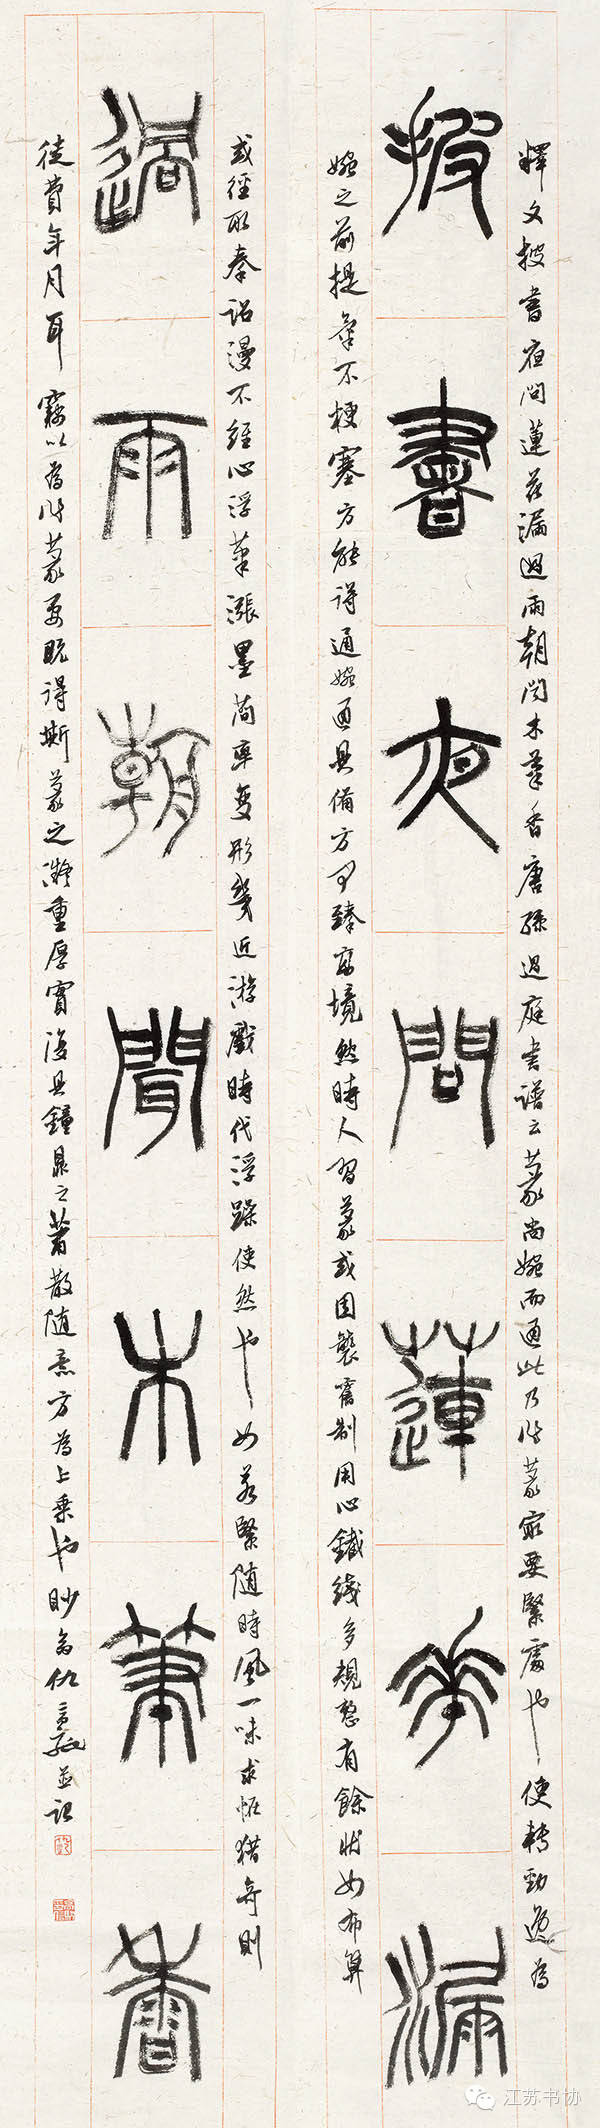 釋文披書夜問蓮花漏過雨朝聞木筆香唐孫過庭書譜云篆尚婉而通此乃作篆最要緊處也使轉勁逸為
披書夜問蓮花漏
婉之前提筆不梗塞方能得通婉通具備方可臻高境然時人習篆或因襲舊制用心鐵綫多規整有餘狀如布算
或徑取秦詔漫不經心浮筆漲墨簡率變形幾近游戲時代浮躁使然也如若緊隨時風一味求怪獵奇則
過雨朝聞木筆香
徒費年月耳竊以為作篆要既得斯篆之凝重厚實復具鐘鼎之蕭散隨意方為上乘也
並記
江苏书协